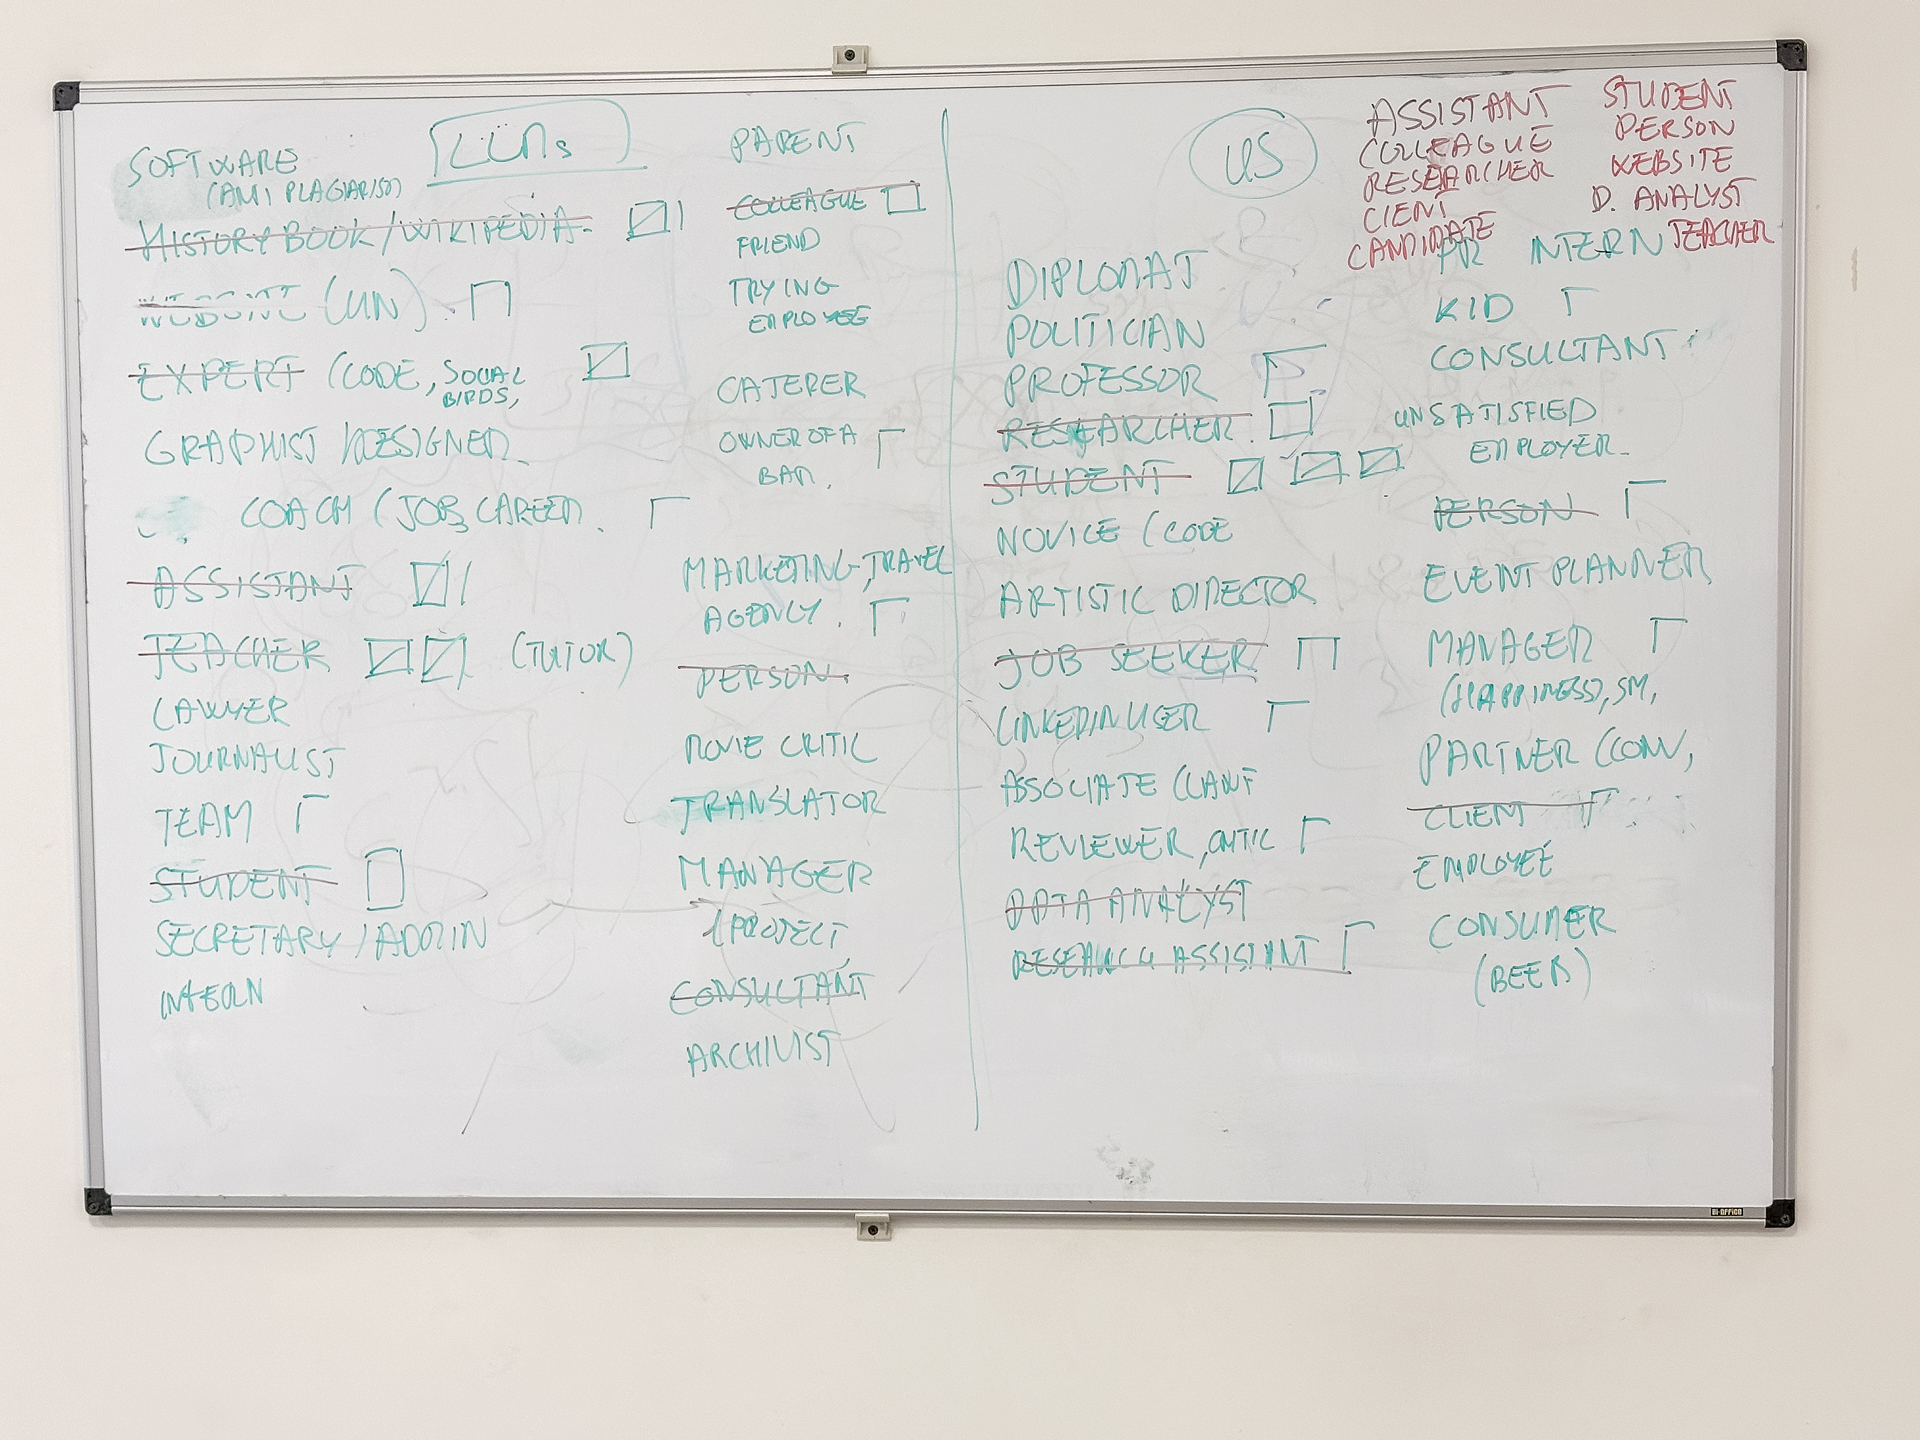 LLMs
SOFTWARE
(AMI PLAGIARISD)
HISTORY BOOK/WIKIPEDIA
(UN)
EXPERT (CODE, SOCIAL
BIRDS,
GRAPHIST /DESIGNER
COACH (JOB, CAREER
ASSISTANT
TEACHER (TUTOR)
LAWYER
JOURNALIST
TEAM
STUDENT
SECRETARY / ADMIN
INTERN
PARENT
COLLEAGUE
FRIEND
TRYING
EMPLOYEE
CATERER
OWNER OF A
BAR.
MARKETING, TRAVEL
AGENCY.
PERSON.
MOVIE CRITIC
TRANSLATOR
MANAGER
(PROJECT
CONSULTANT
ARCHIVIST
US
DIPLOMAT
POLITICIAN
PROFESSOR
RESEARCHER.
STUDENT
NOVICE (CODE
ARTISTIC DIRECTOR
JOB SEEKER
LINKEDIN USER
ASSOCIATE (LAW
REVIEWER, CRITIC
DATA ANALYST
RESEARCH ASSISTANT
ASSISTANT
COLLEAGUE
RESEARCHER
CIENT
CANDIDATE
STUDENT
PERSON
WEBSITE
D. ANALYST
TEACHER
PR INTERN
KID
CONSULTANT
UNSATISFIED
EMPLOYER.
PERSON
EVENT PLANNER
MANAGER
(HAPPINESS), SM,
PARTNER (CONV,
CLIENT
EMPLOYEE
CONSUMER
(BEER)
Bi-OFFICE